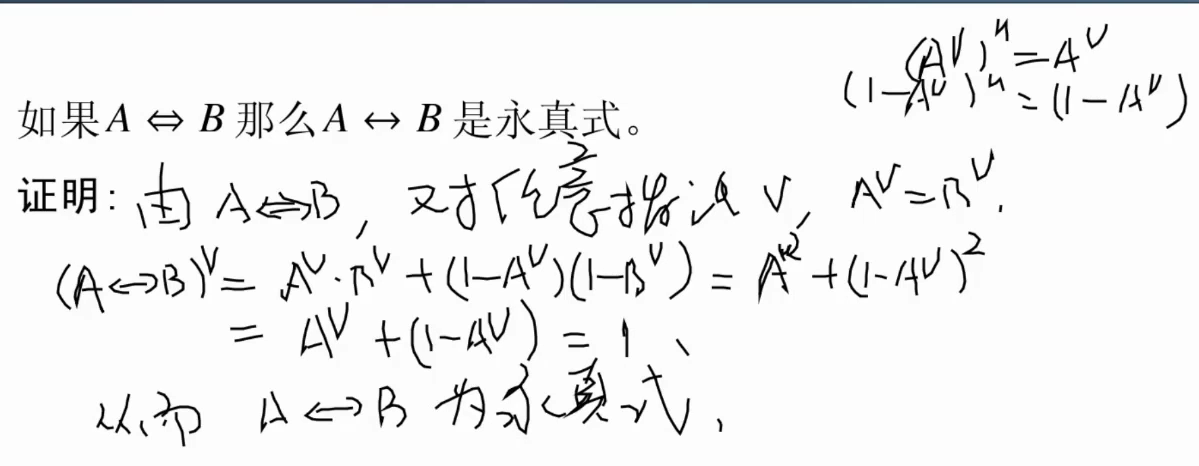 (A^V)^n = A^V
(1-A^V)^n = (1-A^V)
如果A ⇔ B那么A ↔ B是永真式。
证明：由 A⇔B, 对任意指派 V, A^V = B^V.
(A↔B)^V = A^V·B^V + (1-A^V)(1-B^V) = A^V2 + (1-A^V)^2
= A^V + (1-A^V) = 1、
从而 A↔B 为永真式.